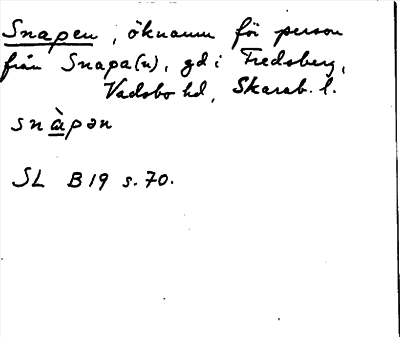 Snapen, öknamn för person
från Snapa(n), gd i Fredsberg,
Vadsbo hd, Skarab. l.
snàpən
SL B 19 s. 70.